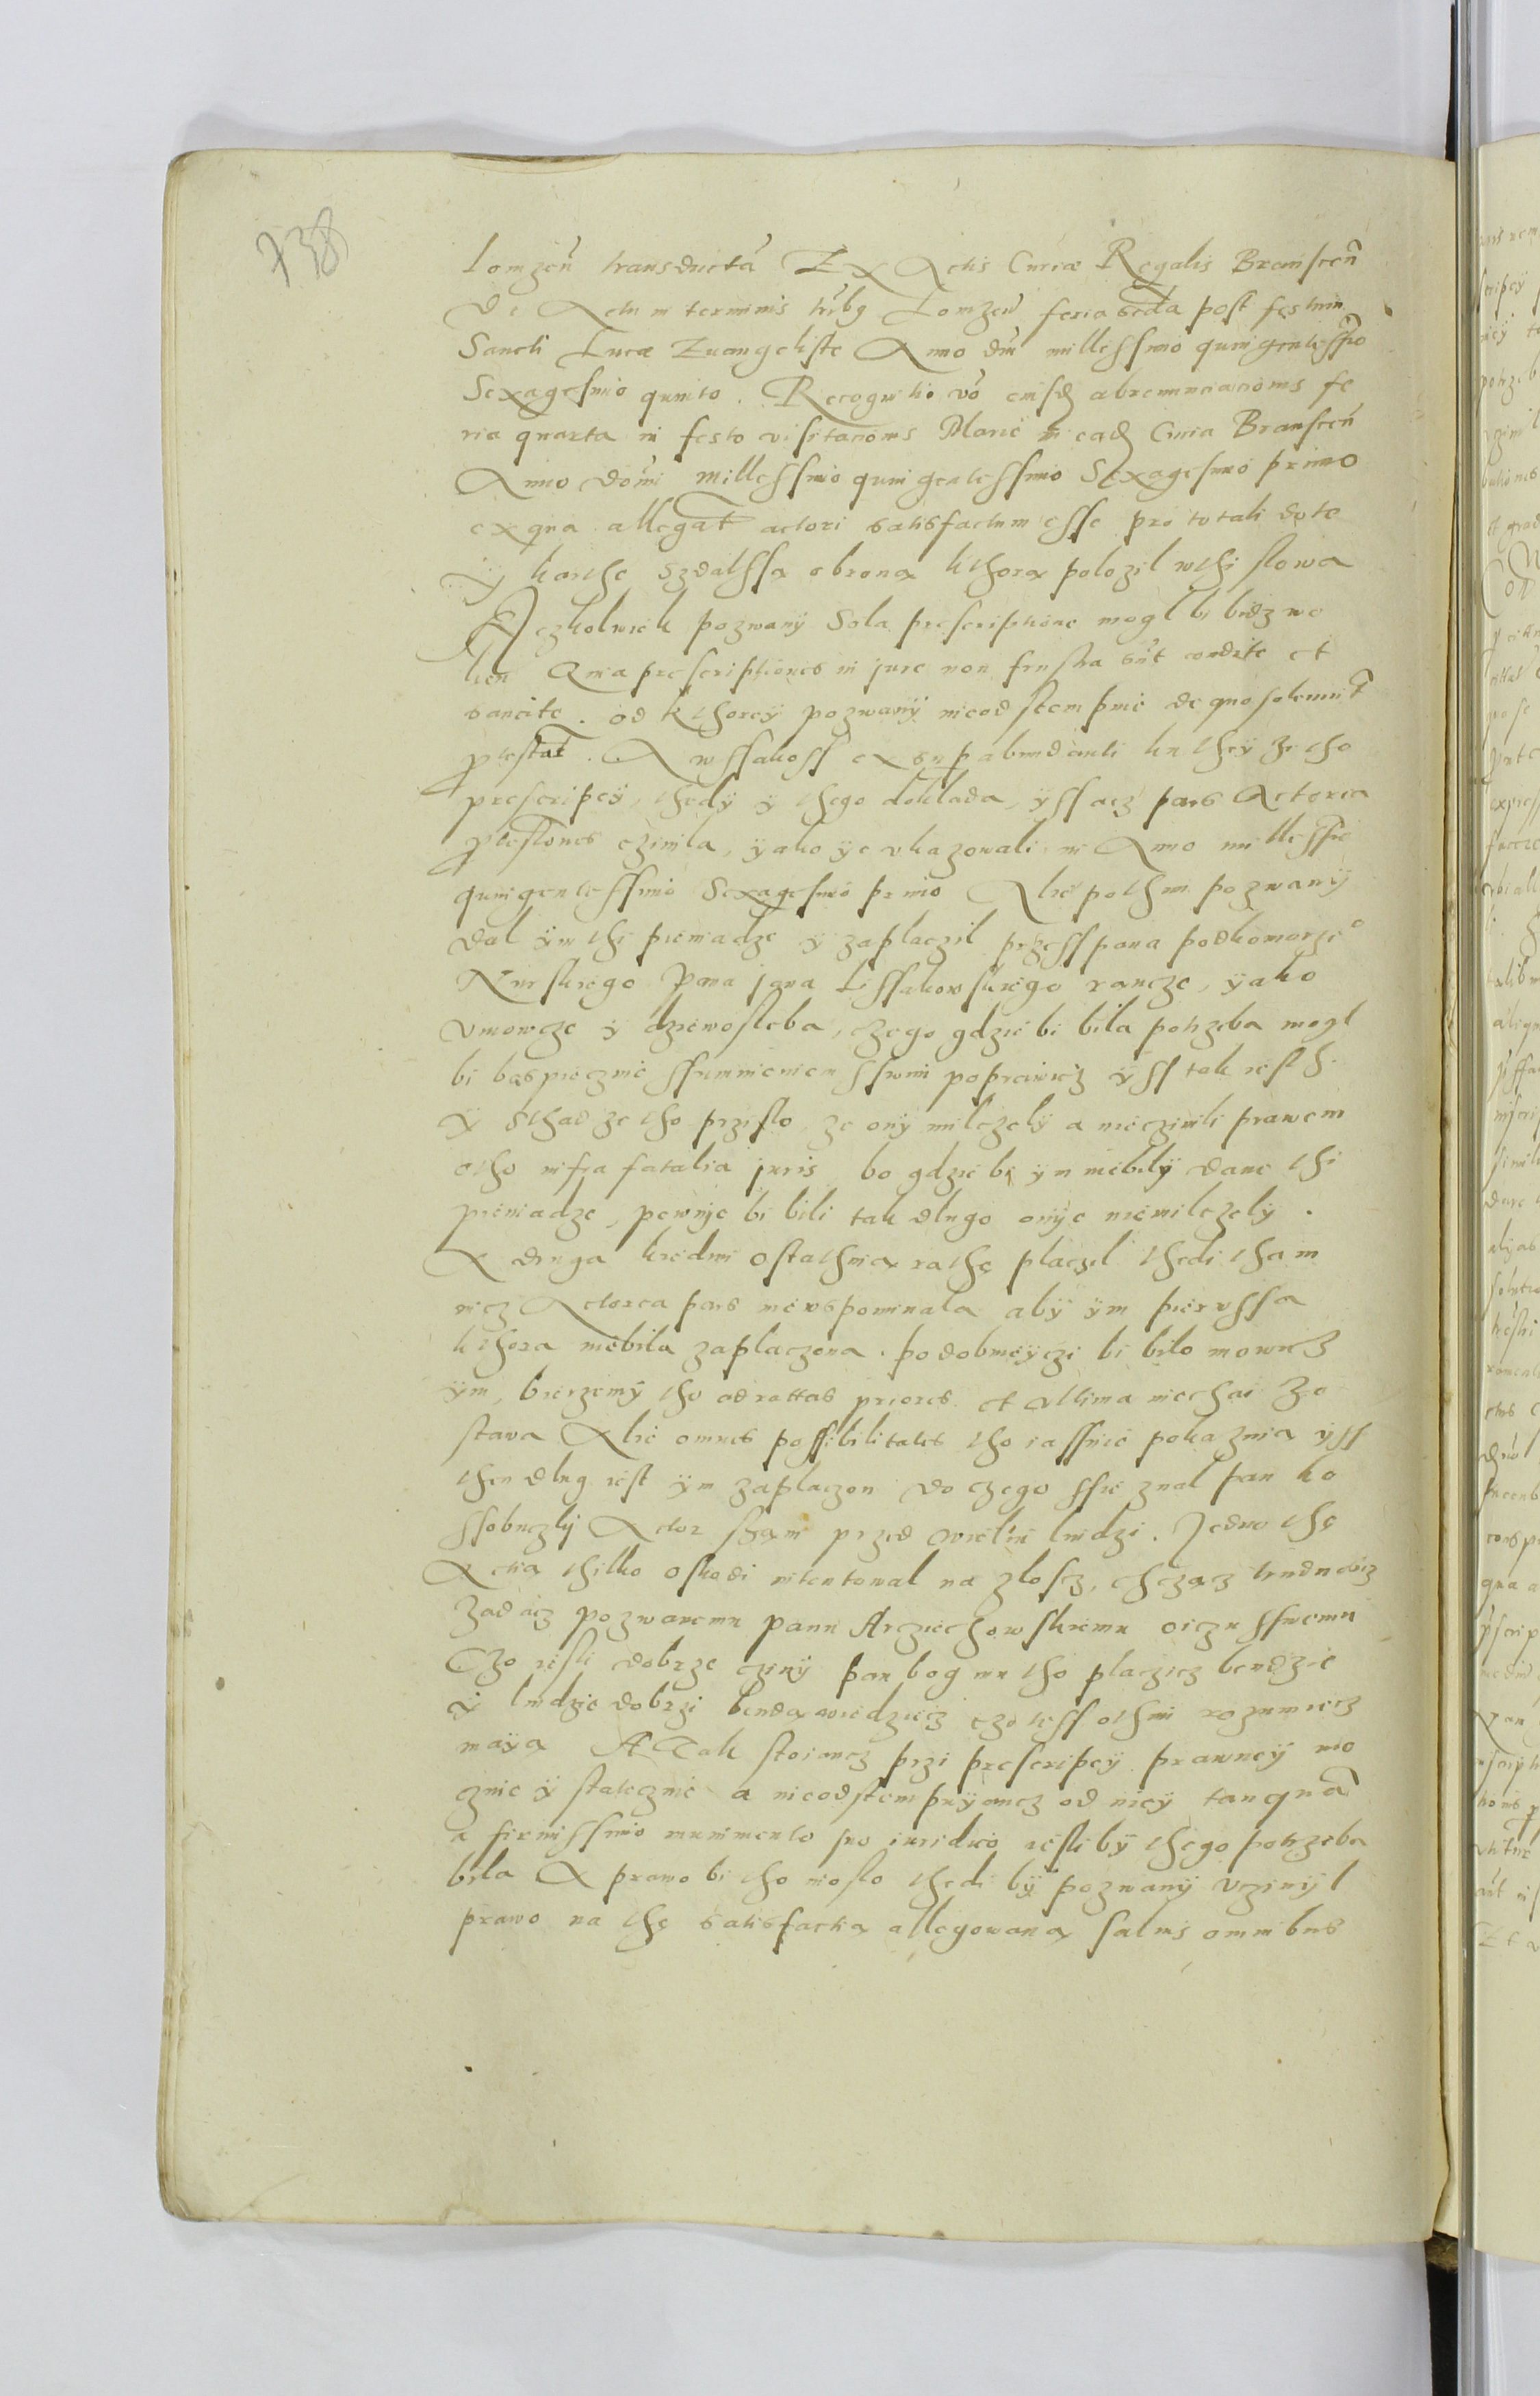 738
Lomzen̄ transductā Ex Actis Curiæ Regalis Branscen̄
de Actu in terminis trib9 Lomzen̄ feria scda post festum
Sancti Lucæ Euangelistę Anno dni millessimo quingentessimo
Sexagesimo quinto. Recognitio vō eiusdē abrenunciacionis fe
ria quarta in festo visitacionis Marię in eadē Curia Branscen̄
Anno domi millessimo quingentessimo Sexagesimo primo
ex qua allegat actori satisfactum esse pro totali dote
obrona kthorą polozil w thi slowa
Aczkolwiek pozwanÿ Sola prescriptione mogl bi bidz wo
lien Quia prescriptiones in jure non frustra sūt conditę et
sancitę. od kthoreÿ pozwanÿ nieodstempuie de quo solennit
ptestat. A wssakoss ex supabundanti ku theÿ ze tho
prescripcÿ, thedÿ ÿ thego doklada, ÿss acz pars Actorea
ptestones czinila, ÿako ÿe vkazowali in Anno millessimo
quingentessimo Sexagesimo primo Alie pothim pozwanÿ
dal ÿm thi pieniadze ÿ zaplaczil przess pana podkomorzeo
Nurskiego Pana Jana Lissakowskiego rancze, ÿako
vmowcze ÿ dziewosleba, czego gdzie bi bila potrzeba mogl
bi bespiecznie ssumnieniem sswim poprawicz ÿss tak iesth.
Y sthad ze tho przislo ze onÿ milczelÿ a nieczinili prawem
otho infra fatalia juris bo gdzie bi ÿm niebilÿ dane thi
pieniadze, pewnÿe bi bili tak dlugo onÿe niemilczelÿ.
A druga kiedim ostathnią rathę placzil thedi tham
nicz Actorea pars niewspominala abÿ ÿm pierwssa
kthora niebila zaplaczona. podobnieÿczi bi bilo mowicz
ÿm, bierzemÿ tho ad rattas priores et vltima niechai zo
stawa Alie omnes possibilitates tho iassnie pokazuią ÿss
then dlug iest ÿm zaplaczon do czego ssie znal pan ko
ssobuczkÿ Actor sam przed wielim liudzi. Jedno thę
Actią thilko oskodi intentowal na zloscz, chcząc trudnoscz
zadacz pozwanemu panu Arcziechowskiemu oiczu sswemu
Czo iesli dobrze czinÿ pan bog mu tho placzicz bendzie
ÿ liudzie dobrzi benda wiedziecz czo tess othim rozumiecz
maÿą A Tak stoiancz przi prescripcÿ prawneÿ mo
cznie ÿ statecznie a nieodstempuÿancz od nieÿ tanquā
a firmissimo munimento suo iuridico iesli bÿ thego potrzeba
bila A prawo bi tho nioslo thedi bÿ pozwanÿ vczinÿl
prawo na thę satisfactią allegowaną saluis omnibus